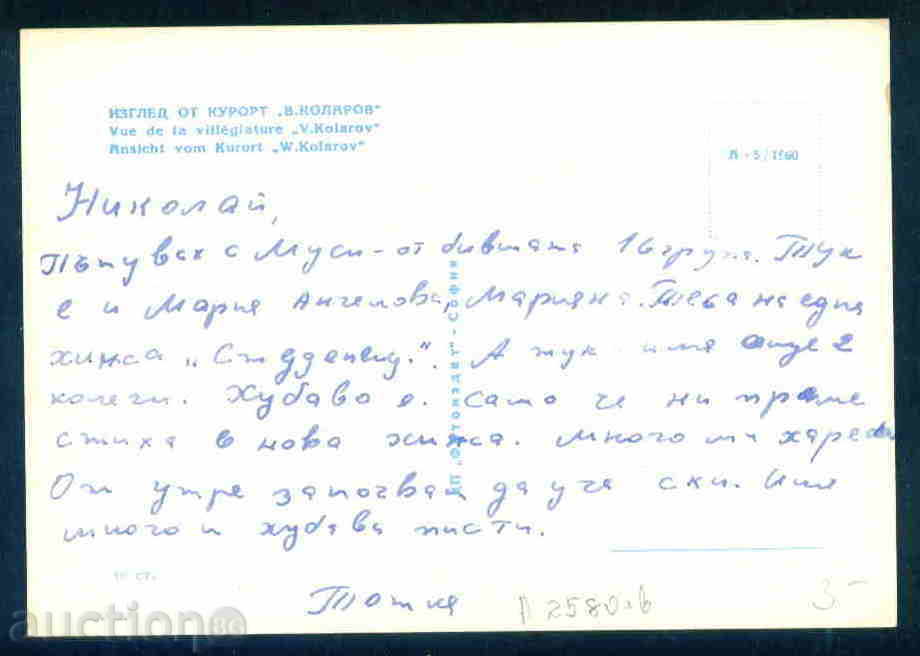 ИЗГЛЕД ОТ КУРОРТ „В.КОЛАРОВ"
Vue de la villégiature „V.Kolarov"
Ansicht vom Kurort „W.Kolarov"
А - 5/1960
Николай,
Пътувах с Муси - от бившата 16 група. Тук
е и Мария Ангелова, Марияна. Те са на една
хижа „Студенец". А тук има още 2
колеги. Хубаво е. Само че ни преме
стиха в нова хижа. Много ми харесва
От утре започвам да уча ски. Има
много и хубави писти.
Тотка
ДП „Фотоиздат" - София
10 ст.
П 2580.6
35-
auction86